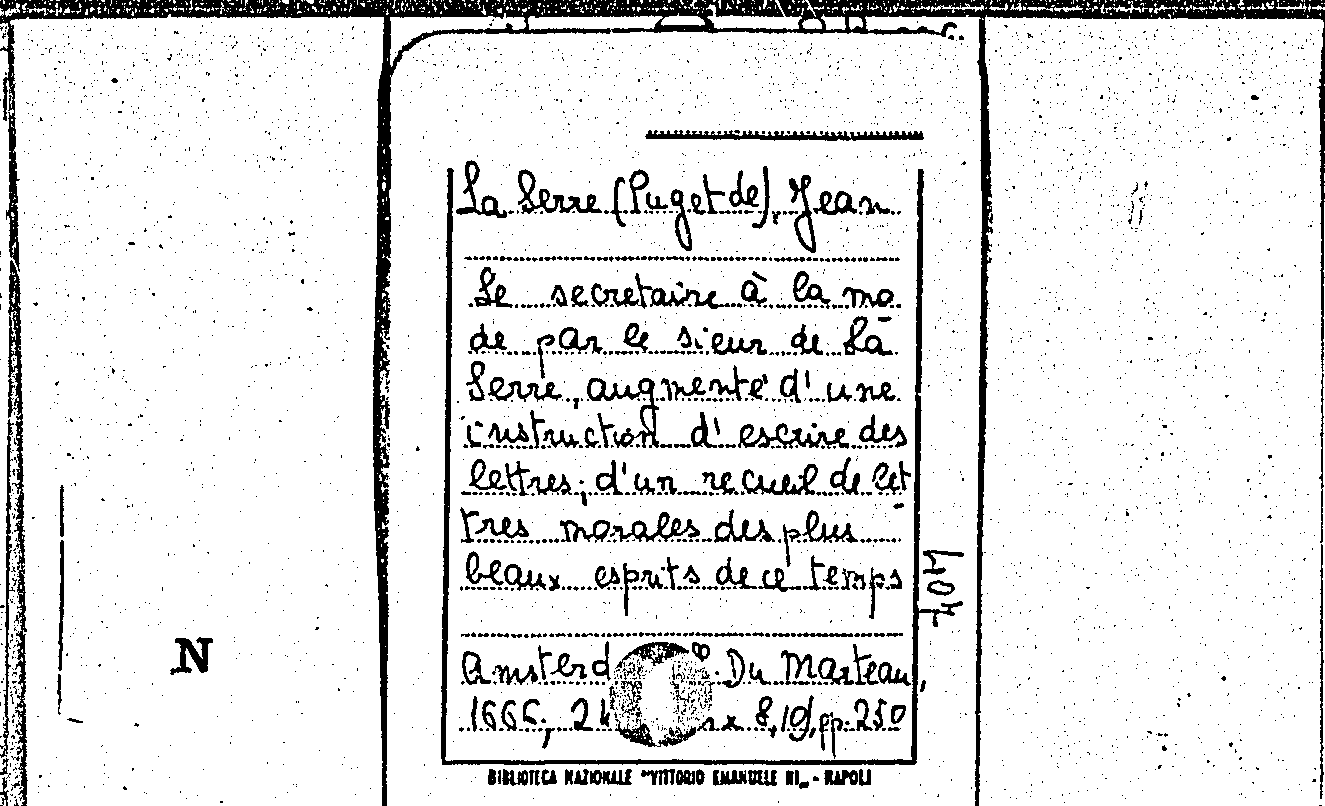 La Serre (Puget de), Jean
Le secretaire à la mo
de par le sieur de La
Serre, augmenté d'une
instruction d'escrire des
lettres; d'un recueil de let
tres morales des plus
beaux esprits de ce temps
Amsterd Du Marteau,
1666, 8,19, pp. 250
407
N
BIBLIOTECA NAZIONALE "VITTORIO EMANUELE III" - NAPOLI